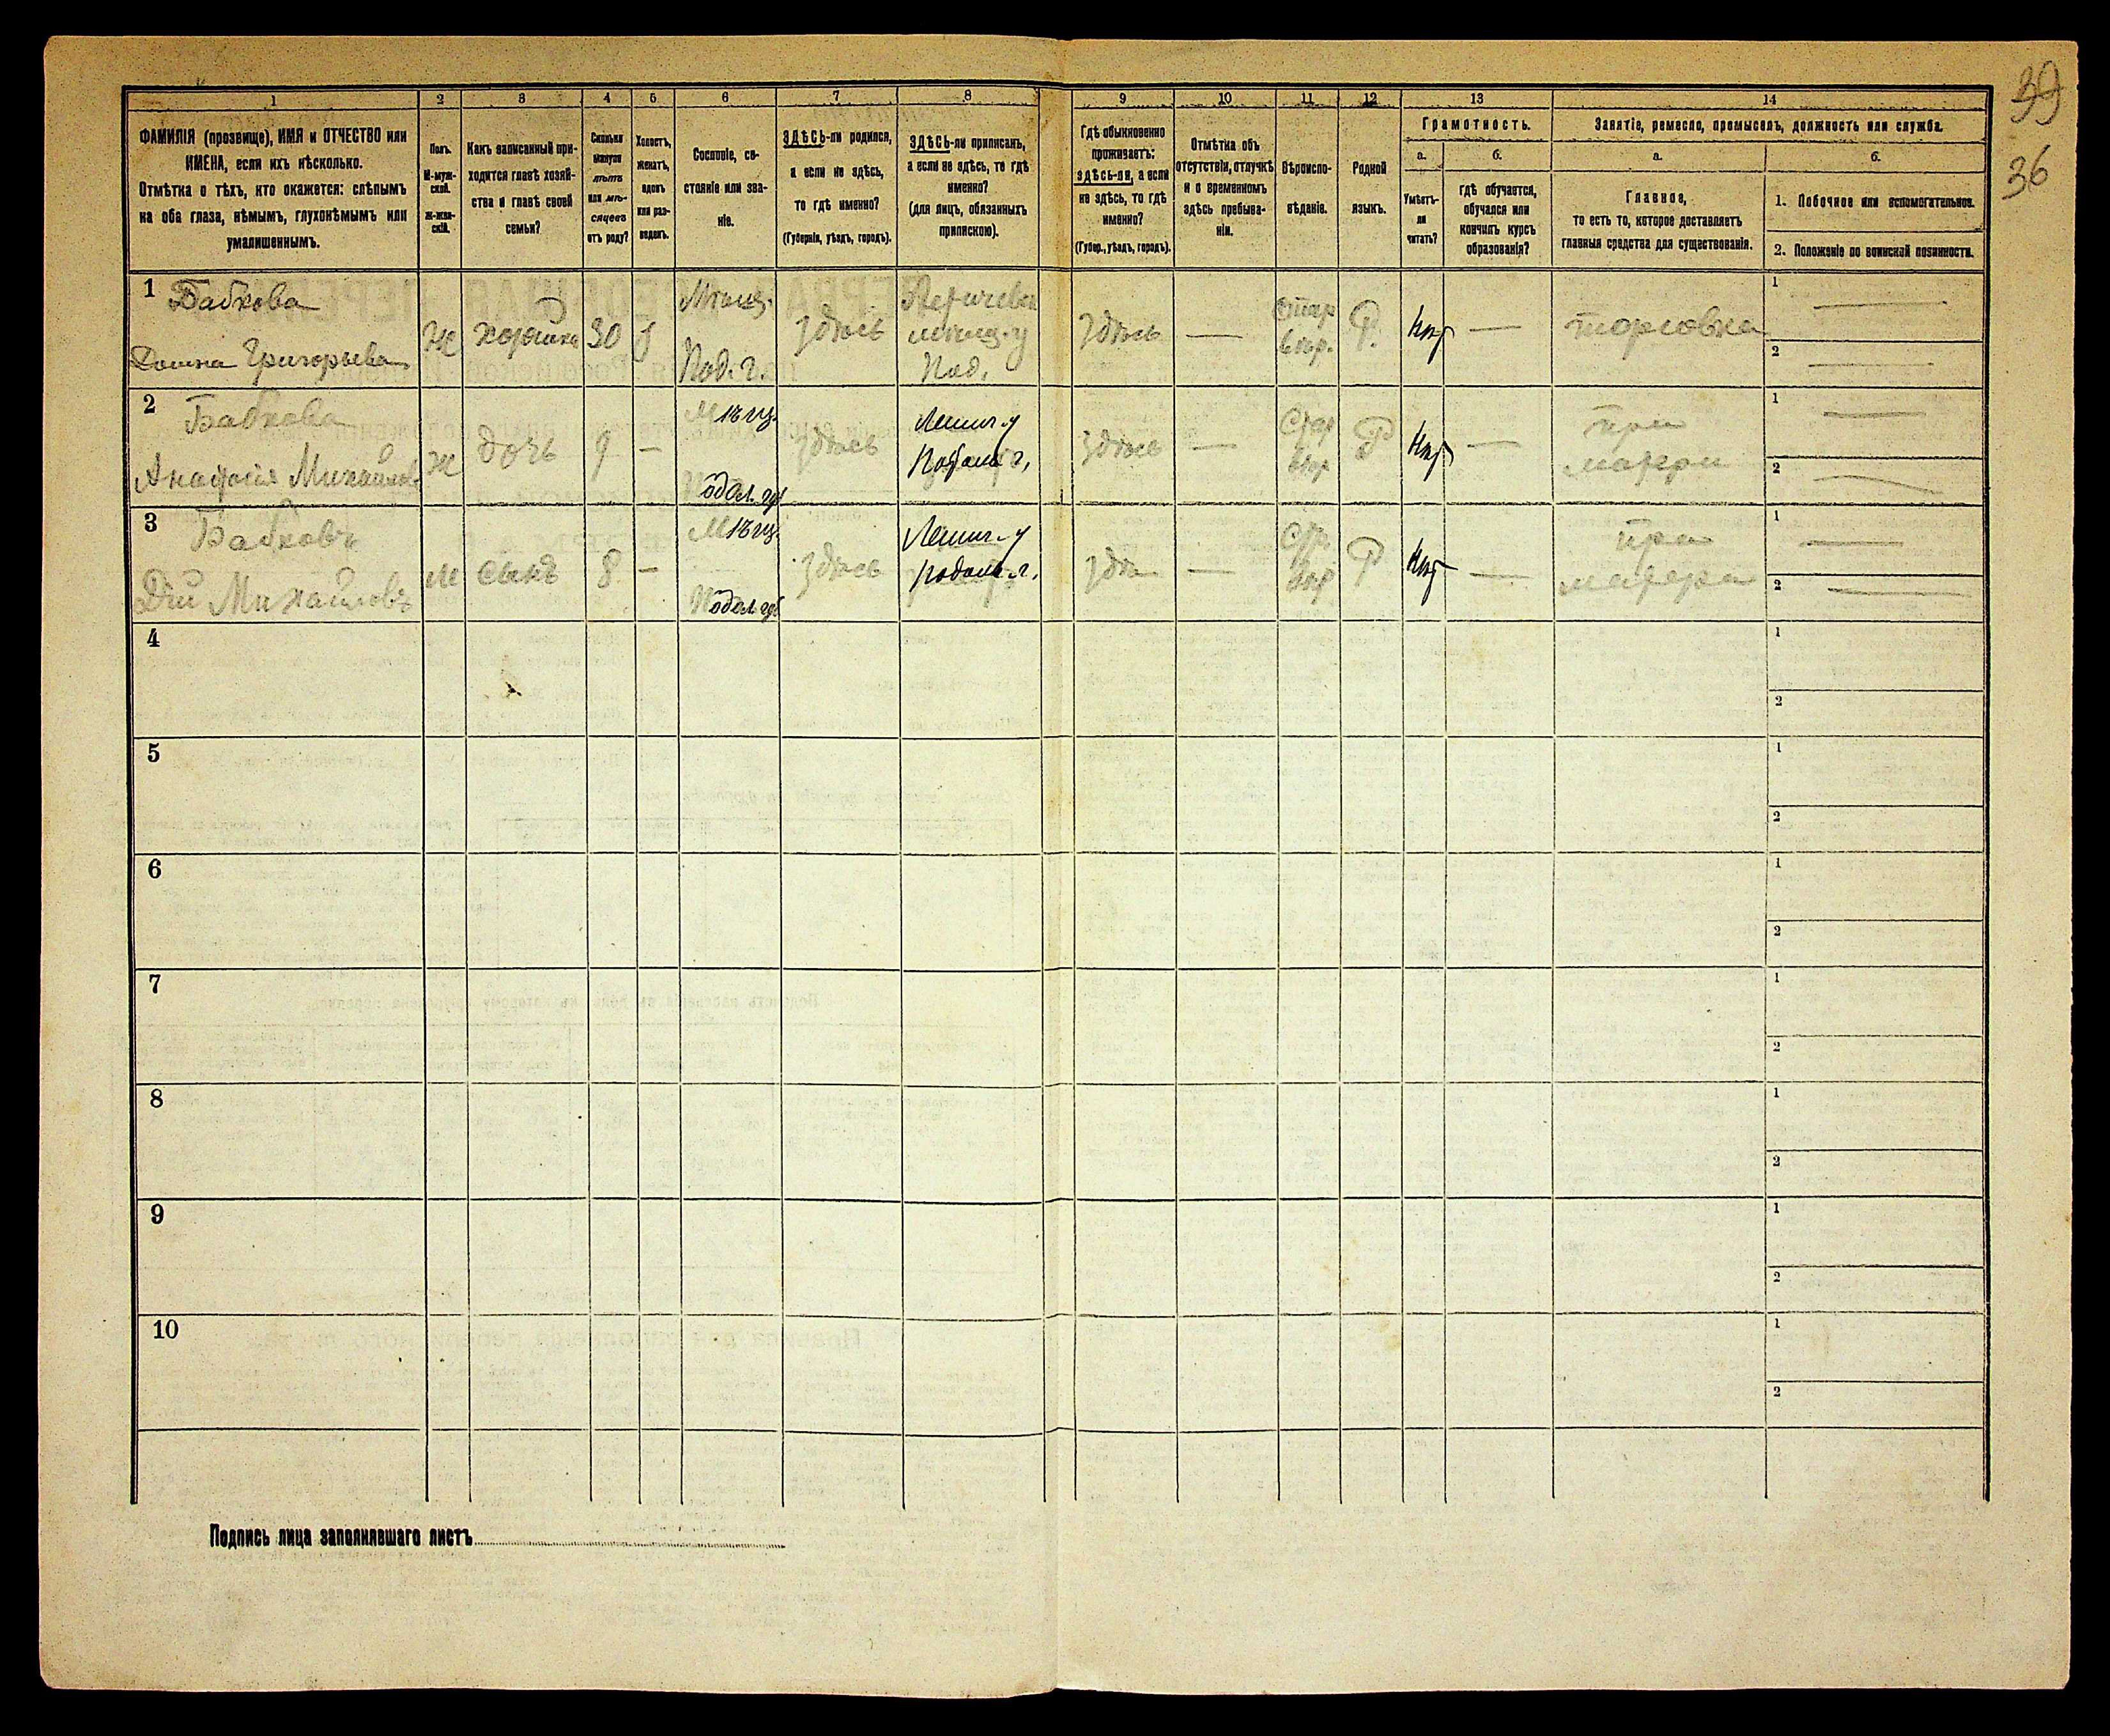 39
36
1 2 3 4 5 6 7 8 9 10 11 12 13 14
ФАМИЛІЯ (прозвище), ИМЯ и ОТЧЕСТВО или
ИМЕНА, если ихъ нѣсколько.
Отмѣтка о тѣхъ, кто окажется: слѣпымъ
на оба глаза, нѣмымъ, глухонѣмымъ или
умалишеннымъ.
Полъ.
М-муж-
ской.
Ж-жен-
скій.
Какъ записанный при-
ходится главѣ хозяй-
ства и главѣ своей
семьи?
Сколько
минуло
лѣтъ
или мѣ-
сяцевъ
отъ роду?
Холостъ,
женатъ,
вдовъ
или раз-
веденъ.
Сословіе, со-
стояніе или зва-
ніе.
ЗДѢСЬ-ли родился,
а если не здѣсь,
то гдѣ именно?
(Губернія, уѣздъ, городъ).
ЗДѢСЬ-ли приписанъ,
а если не здѣсь, то гдѣ
именно?
(для лицъ, обязанныхъ
припискою).
Гдѣ обыкновенно
проживаетъ:
здѣсь-ли, а если
не здѣсь, то гдѣ
именно?
(Губер., уѣздъ, городъ).
Отмѣтка объ
отсутствіи, отлучкѣ
и о временномъ
здѣсь пребыва-
ніи.
Вѣроиспо-
вѣданіе.
Родной
языкъ.
Грамотность.
а.
Умѣетъ-
ли
читать?
б.
гдѣ обучается,
обучался или
кончилъ курсъ
образованія?
Занятіе, ремесло, промыселъ, должность или служба.
а.
Главное,
то есть то, которое доставляетъ
главныя средства для существованія.
б.
1. Побочное или вспомогательное.
2. Положеніе по воинской повинности.
1 Бабкова
Домна Григорьева
Ж
хозяйка
30
Мѣщ.
Под. г.
здѣсь
мѣщ. у
Под.
здѣсь
—
Стар
вѣр.
Р.
нѣт
—
торговка
1 —
2 —
2 Бабкова
Ж
дочь
9
—
Мѣщ.
Подол. губ
здѣсь
Летич. у
Подол. г.
здѣсь
—
Стар
вѣр
Р
нѣт
—
при
матери
1 —
2 —
3 Бабковъ
Дій Михайловъ
М
сынъ
8
—
Мѣщ.
Подол. губ
здѣсь
Летич. у
Подол. г.
—
вѣр
Р
нѣт
—
при
матери
1 —
2 —
4
1
2
5
1
2
6
1
2
7
1
2
8
1
2
9
1
2
10
1
2
Подпись лица заполнявшаго листъ